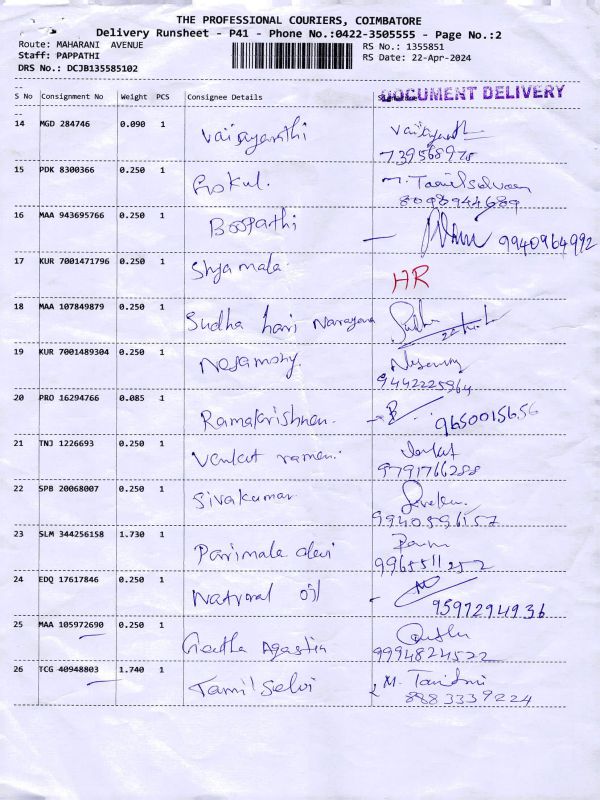 THE PROFESSIONAL COURIERS, COIMBATORE
Delivery Runsheet - P41 - Phone No.:0422-3505555 - Page No.:2
Route: MAHARANI AVENUE
RS No.: 1355851
Staff: PAPPATHI
RS Date: 22-Apr-2024
DRS No.: DCJB135585102
--
S No Consignment No Weight PCS Consignee Details
DOCUMENT DELIVERY
--
14 MGD 284746 0.090 1 Vaijayanthi
739568978
15 PDK 8300366 0.250 1 Gokul. M. Tamilselvan
8098944689
16 MAA 943695766 0.250 1 Boopathi 9940964992
17 KUR 7001471796 0.250 1 Shyamala HR
18 MAA 107849879 0.250 1 Sudha hari Narayana Sudha
19 KUR 7001489304 0.250 1 Nesamony.
9442225864
20 PRO 16294766 0.085 1 Ramakrishnan. 9650015656
21 TNJ 1226693 0.250 1 Venkat raman. Venkat
9791766288
22 SPB 20068007 0.250 1 Sivakumar
9940596157
23 SLM 344256158 1.730 1 Parimala devi
9965511252
24 EDQ 17617846 0.250 1 Natural oil 9597294936
25 MAA 105972690 0.250 1 Geetha Agastin
9994824522
26 TCG 40948803 1.740 1 Tamil Selvi
8883339224